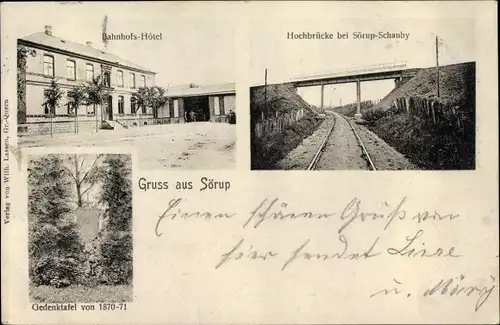 Bahnhofs-Hôtel
Hochbrücke bei Sörup-Schauby
Verlag von Wilh. Lassen, Gr.-Quern
Gruss aus Sörup
Gedenktafel von 1870-71
Einen schönen Gruß von
hier senden Liese
u.